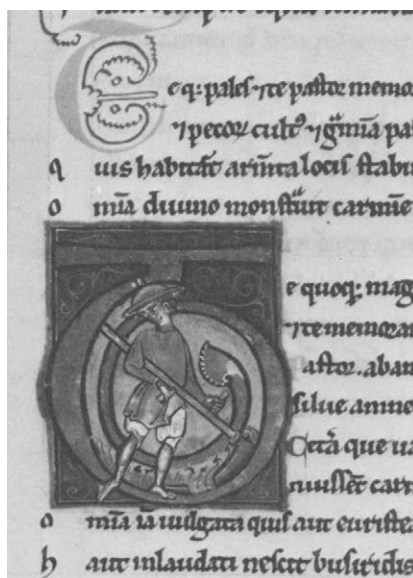 e q; pales ⁊ te pastor memo
⁊ pecor cult⁹ ⁊ gmĩa pa
q uis habitãt armĩta locis stabu
o mĩa diuuno monstuit carmĩe
e quoq; mag
⁊ te memoran
astor. ab am
silue amne
Cetã que ua
nuissẽt carm
o mĩa iã uulgata quis aut euristea
h aut inlaudati nescit busiridis